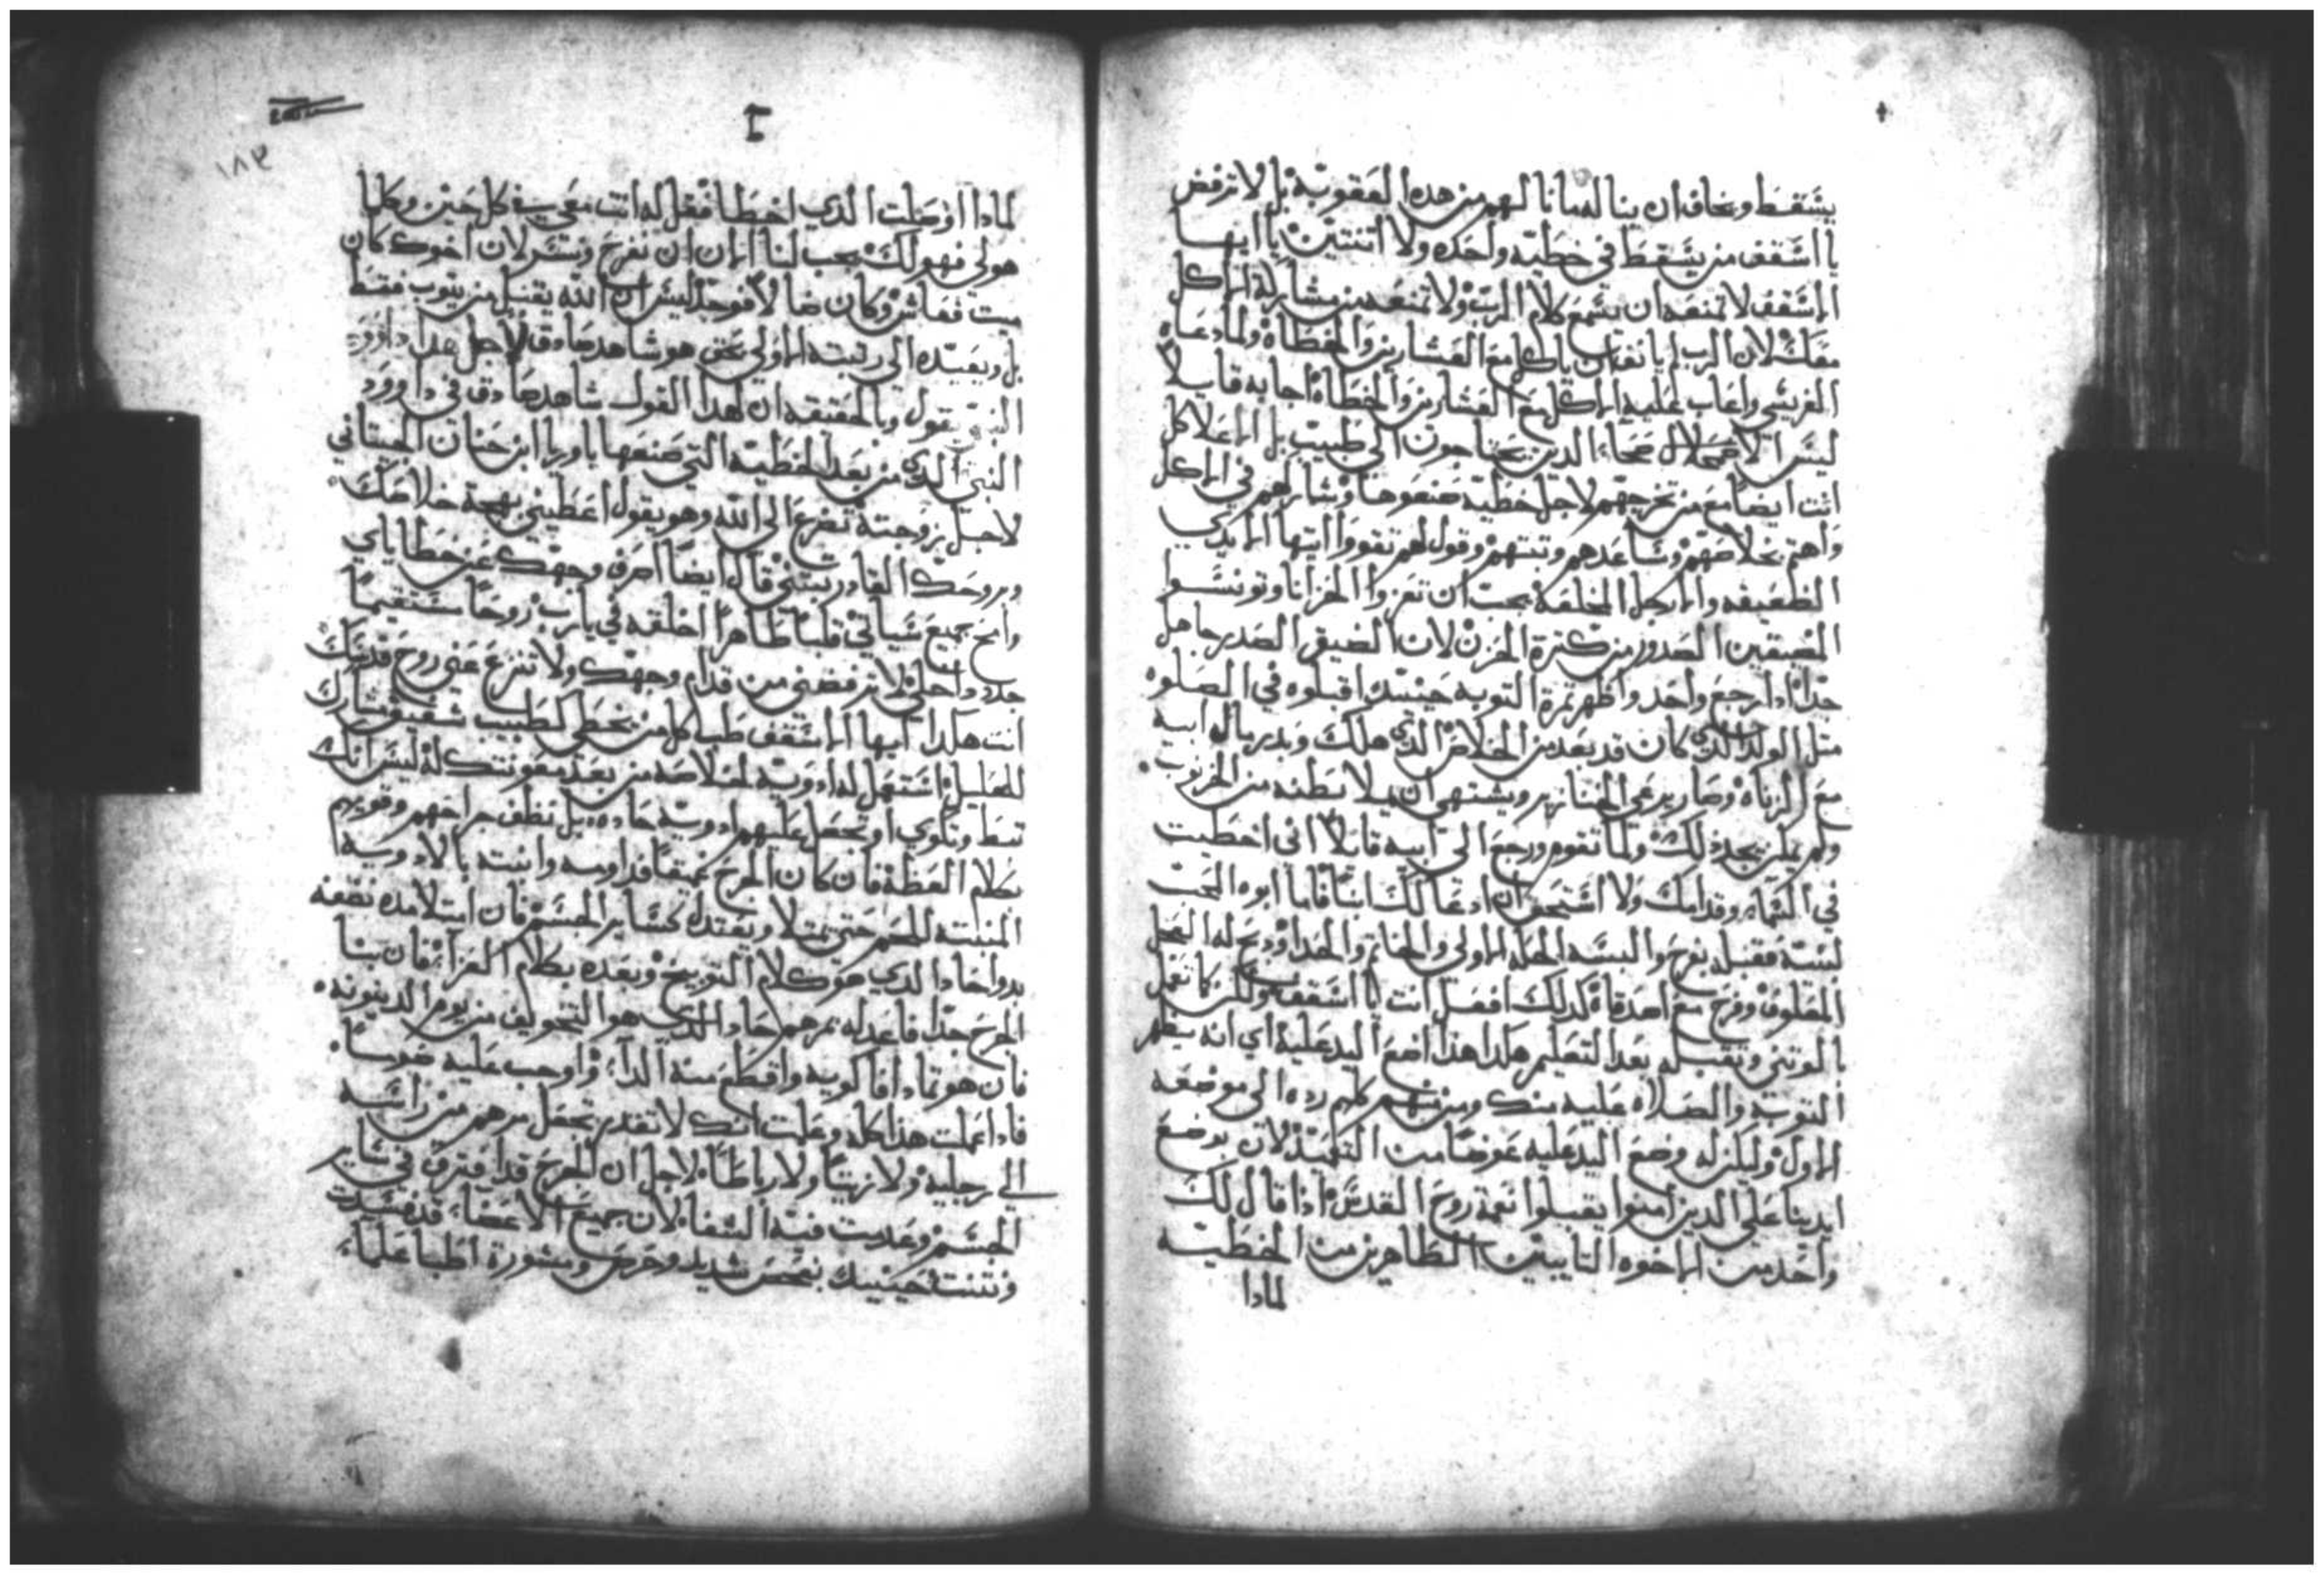 يسقط ويخاف ان يناله ما نالهم من هده العقوبة بل لا ترفض
يا اسقف من يسقط في خطيه واحده ولا اتنتين يا ايها
الاسقف لا تمنعه ان يسمع كلام الرب ولا تمنعه من مشاركة الاكل
معك لان الرب لم يانف ان ياكل مع العشارين والخطاه ولما دعاه
الفريسي واعاب عليه الاكل مع العشارين والخطاه اجابه قايلا
ليس الاصحا الدين يحتاجون الى طبيب بل الاعلا كل
انت ايضا مع من تخرجهم لاجل خطيه صنعوها وشاركهم في الاكل
واهتم بخلاصهم وساعدهم وتبتهم وقول لهم تقووا ايتها الايدي
الضعيفه والارجل المخلعه يجب ان تعزوا الحزانا وتونسوا
المضيقين الصدور من كترة الحزن لان الضيق الصدر جاهل
جدا ادا رجع واحد واظهر تمرة التوبه حينيد اقبلوه في الصلوه
متل الولد الدي كان قد بعد من الخلاص الدي هلك وبدر مال ابيه
مع الزناه وصار يرعى الخنازير ويشتهي ان يملا بطنه من الخرنوب
ولم يكن يجد دلك ولما تقوم ورجع الى ابيه قايلا اني اخطيت
في السماء وقدامك ولا استحق ان ادعا لك ابنا فاما ابوه المحب
لبنه فقبله بفرح والبسه الحله الاولى والخاتم والحدا ودبح له العجل
المعلوف وفرح مع اصدقاه كدلك افعل انت يا اسقف ولكن كما تفعل
بالوتني وتقبله بعد التعليم هكدا هدا اضع اليد عليه اي انه يظهر
التوبه والصلاه عليه منك ومنهم كلهم رده الى موضعه
الاول وليكن له وضع اليد عليه عوضا من التعميد لان بوضع
ايدينا على الدين امنوا يقبلوا نعمة روح القدس ادا قال لك
واحد من الاخوه التايبين الطاهرين من الخطيه
لمادا
لمادا اوصلت الدي اخطا فقل له انت معي في كل حين وكلما
هو لي فهو لك يجب لنا الان ان نفرح ونسر لان اخوك كان
ميت فعاش وكان ضالا فوجد ليس ان الله يقبل من يتوب فقط
بل ويعيده الى رتبته الاولى نحن هو شاهد صادق لاجل هدا داوود
النبي يقول وبالحقيقه ان لهدا القول شاهد صادق في داوود
النبي الدي من بعد الخطيه التي صنعها باوريا ابن حنان الحيتاني
لاجل زوجته تضرع الى الله وهو يقول اعطيني بهجة خلاصك
وبروحك القادر تبتني قال ايضا اصرف وجهك عن خطاياي
وامح جميع سياتي قلبا طاهرا اخلقه في يارب روحا مستقيما
جدد داخلي لا ترفضني من قدام وجهك ولا تنزع عني روح قدسك
انت هكدا ايها الاسقف طب كل من يخطي كطبيب شفيق مشارك
للعليل استعمل له ادويه لخلاصه من بعد معونتك له ليس انك
تبط وتكوي او تجعل عليهم ادويه حاده بل نظف جراحهم وقويهم
بكلام العظة فان كان الجرح عميقا فداويه وانبته بالادويه
المنبته للحم حتى يمتلا ويعتدل كساير الجسم فان امتلا مده نظفه
بدوا حاد الدي هو كلام التوبيخ وبعده بكلام العزاء فان بتا
الجرح جدا فاعد له مرهم حاد الدي هو التخويف من يوم الدينونه
فان هو تمادا فاكويه واقطع منه الداء واوجب عليه صوما
فادا عملت هدا كله وعلمت انك لا تقدر تجعل مرهم من راسه
الي رجليه ولا زيتا ولا رباطا لاجل ان الجرح قد افترق في ساير
الجسم وعدمت فيه الشفا لان جميع الاعضاء قد فسدت
ونتنت حينيد بفحص شديد وحرص ومشورة اطبا علماء